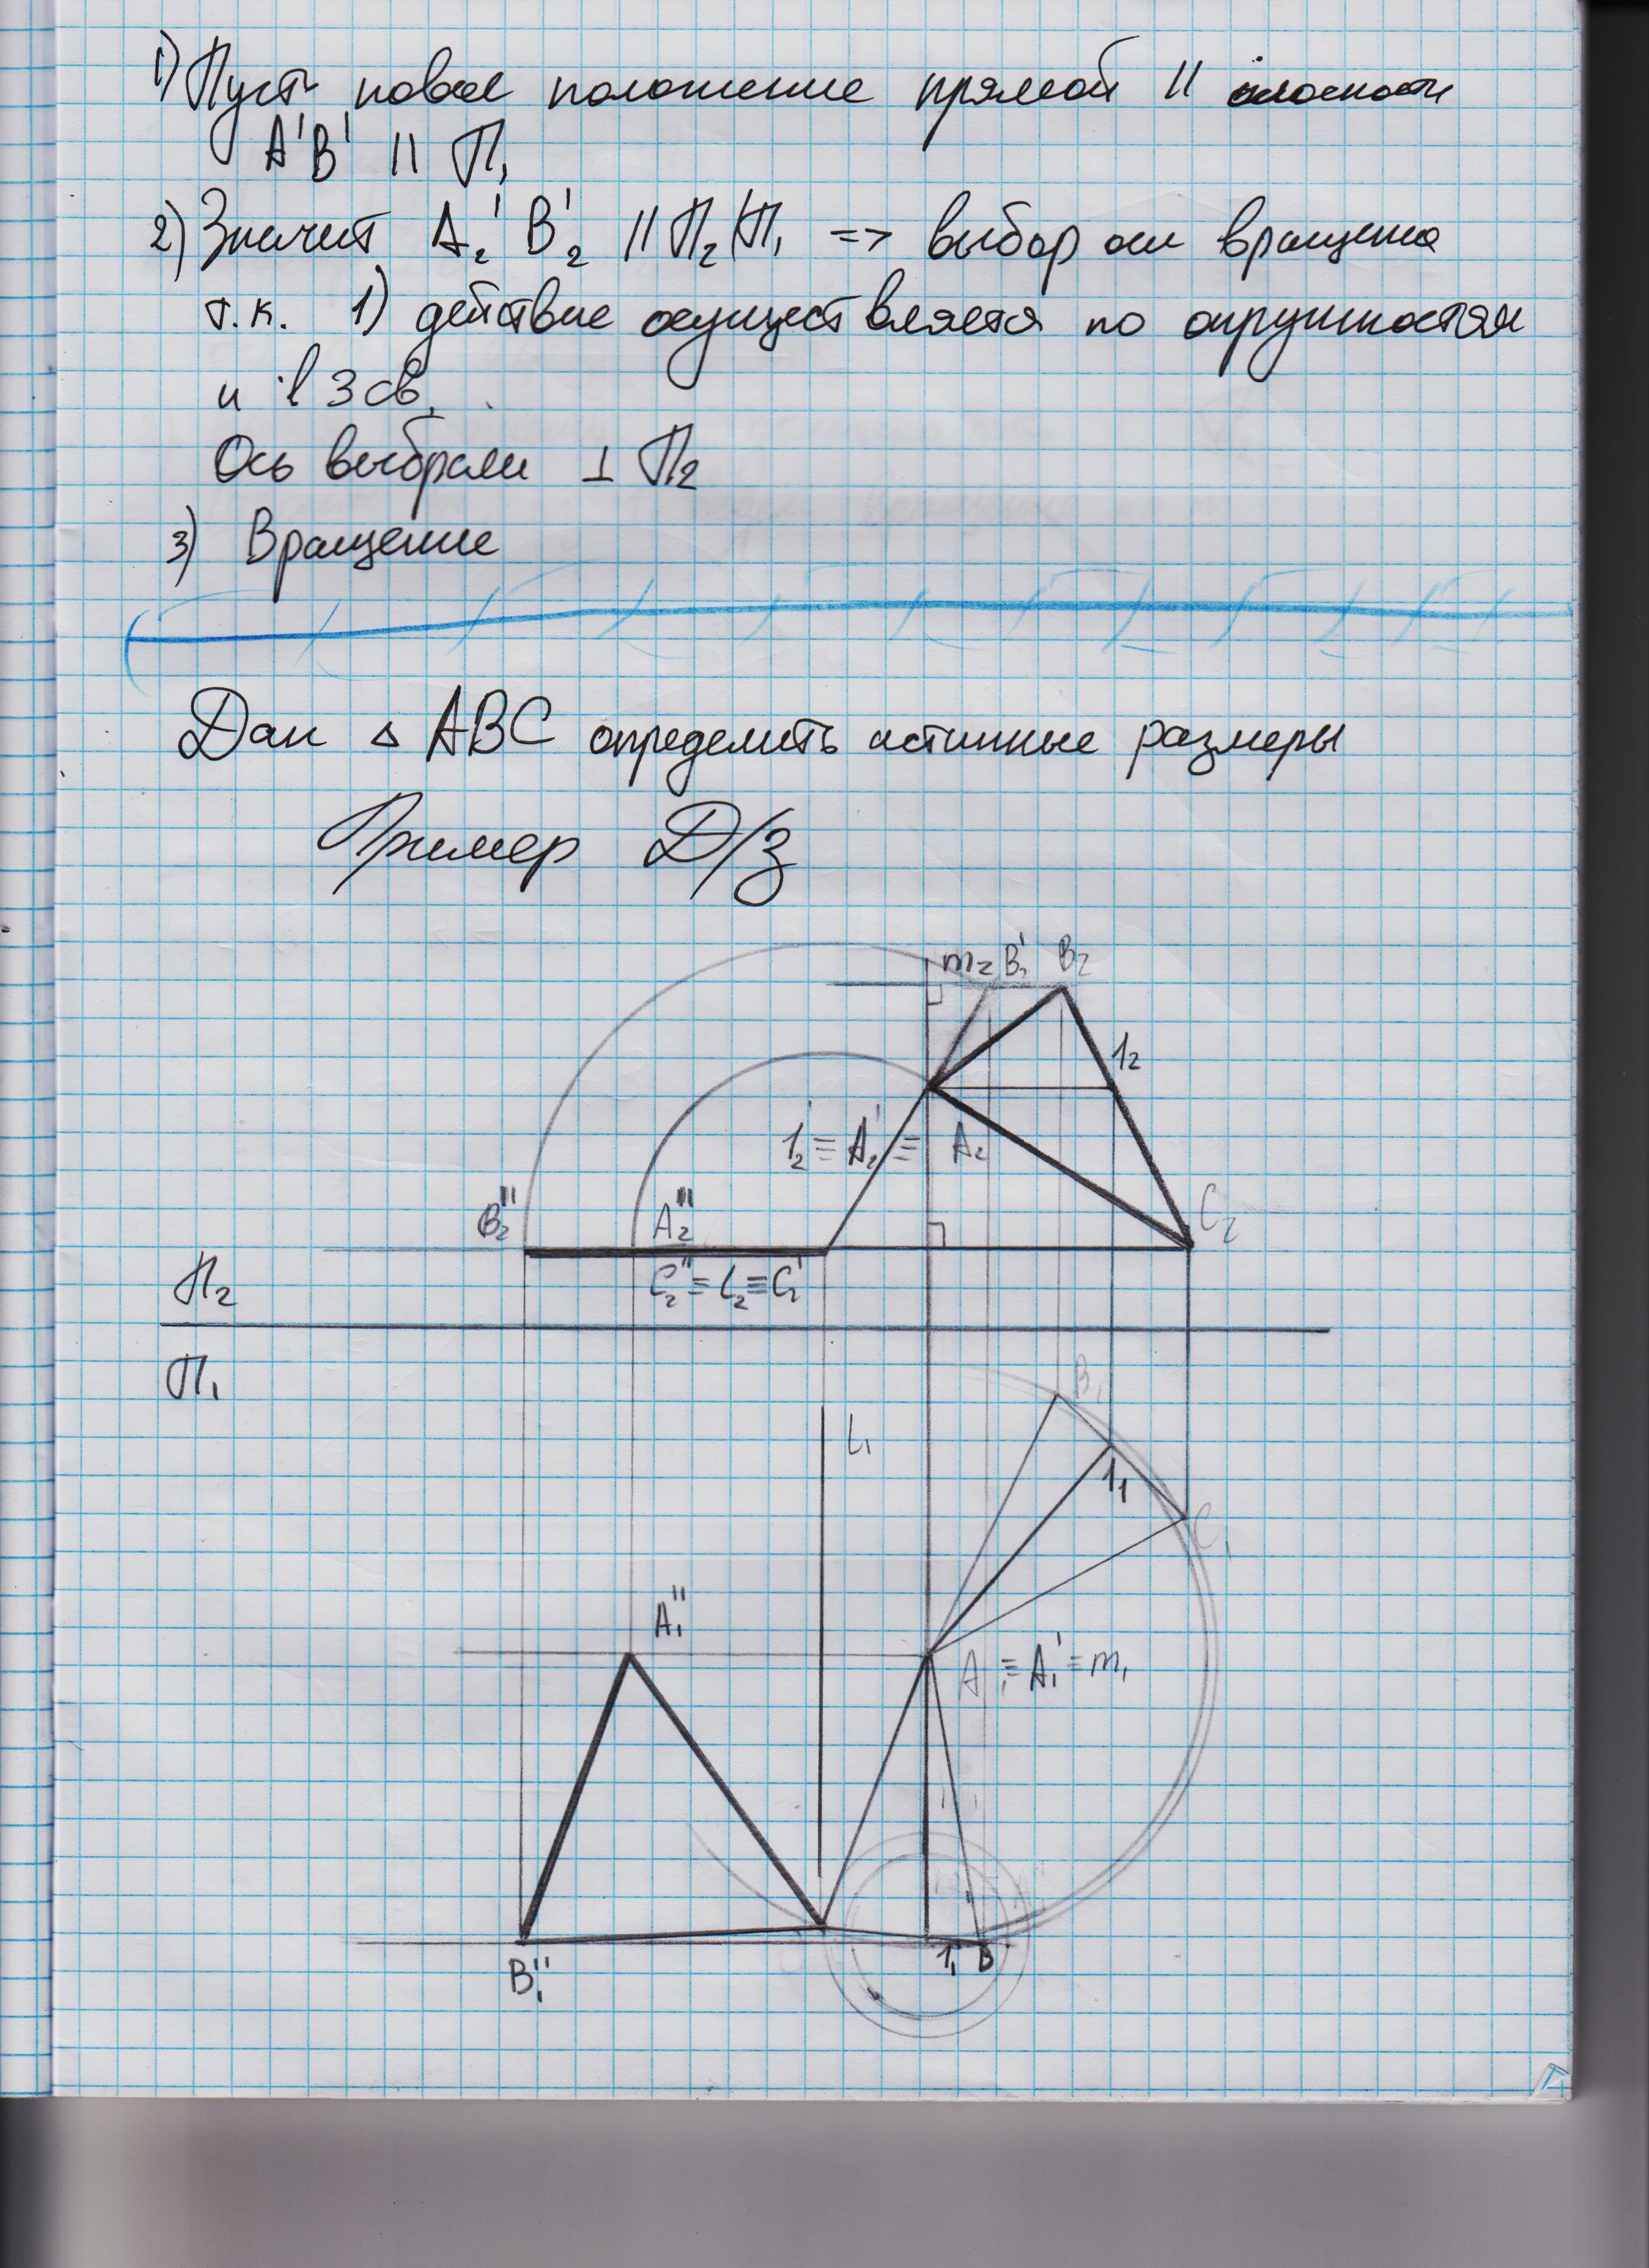 1) Пусть новое положение прямой || плоскости
A'B' || П₁
2) Значит A₂' B₂' || П₂/П₁ => выбор оси вращения
т.к. 1) действие осуществляется по окружностям
и в 3 св.
Ось выбрали ⊥ П₂
3) Вращение
Дан ▵ ABC определить истинные размеры
Пример Д/з
m₂ B₁' B₂
1₂
1₂' ≡ A₂' ≡ A₂
B₂'' A₂'' C₂
C₂'' ≡ L₂ ≡ C₂'
П₂
П₁
B₁
L₁
1₁
C₁
A₁''
A₁ ≡ A₁' ≡ m₁
1₁' B
B₁''